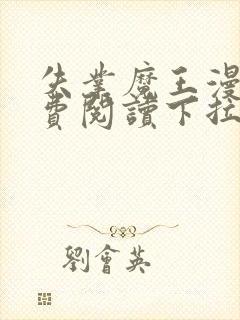 失業魔王漫
費閱讀下拉
劉會英